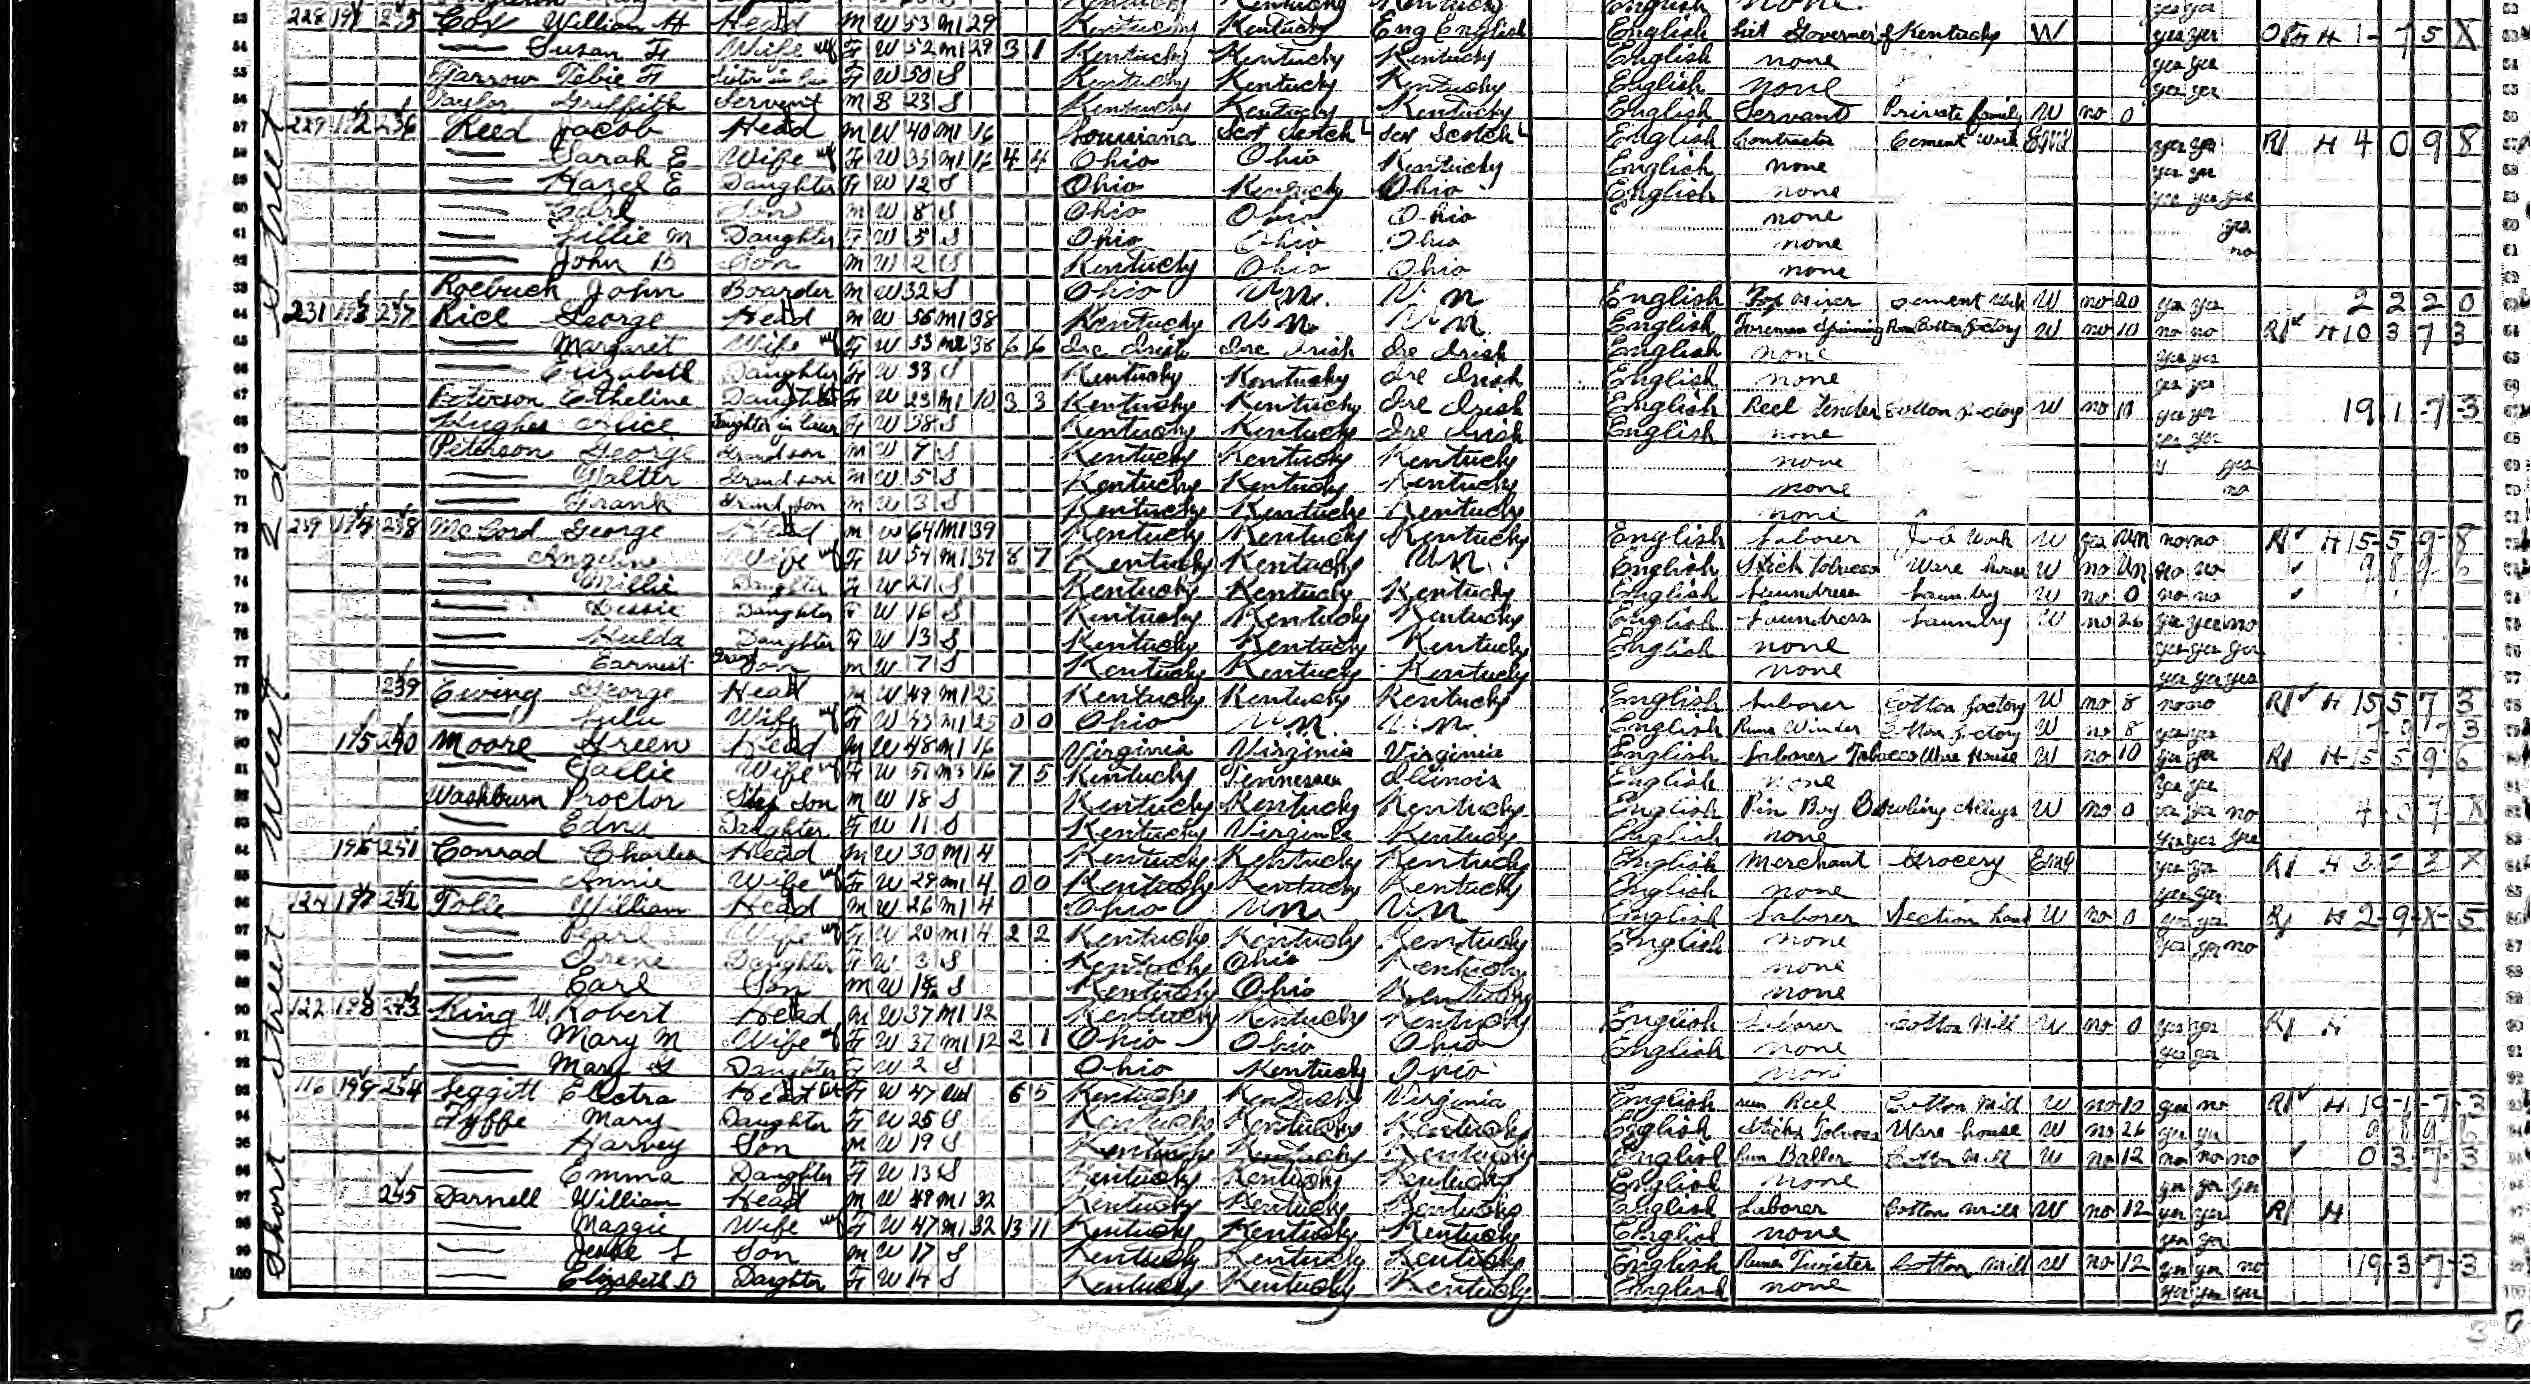 53 228 191 235 Cox William H Head M W 53 M1 29 Kentucky Kentucky Eng English English Lieut Governor of Kentucky W yes yes O H 1-7 5 X
54 Susan F Wife F W 52 M1 29 3 1 Kentucky Kentucky Kentucky English none yes yes
55 Farrow Tebie F Sister in law F W 50 S Kentucky Kentucky Kentucky English none yes yes
56 Taylor Griffith Servent M B 23 S Kentucky Kentucky Kentucky English Servant Private family W no 0
57 229 192 236 Reed Jacob Head M W 40 M1 16 Louisiana Scot Scotch Scot Scotch English Contractor Cement Work Emp yes yes R H 4 0 9 8
58 Sarah E Wife F W 33 M1 16 4 4 Ohio Ohio Kentucky English none yes yes
59 Hazel E Daughter F W 12 S Ohio Kentucky Ohio English none yes yes yes
60 Earl Son M W 8 S Ohio Ohio Ohio none yes
61 Lillie M Daughter F W 5 S Ohio Ohio Ohio none no
62 John B Son M W 2 S Kentucky Ohio Ohio none
63 Roebuck John Boarder M W 32 S Ohio Un. Un English cement W no 20 yes yes 2 2 2 0
64 231 193 237 Rice George Head M W 56 M1 38 Kentucky Un Un English Foreman Spinning Room Cotton Factory W no 10 no no R H 10 3 7 3
65 Margaret Wife F W 53 M2 38 6 6 Ire Irish Ire Irish Ire Irish English none yes yes
66 Elizabeth Daughter F W 33 S Kentucky Kentucky Ire Irish English none yes yes
67 Peterson Etheline Daughter F W 23 M1 10 3 3 Kentucky Kentucky Ire Irish English Reel Tender Cotton Factory W no 10 yes yes 19-1-7-3
68 Hughes Alice Daughter in law F W 38 S Kentucky Kentucky Ire Irish English none yes yes
69 Peterson George Grand son M W 7 S Kentucky Kentucky Kentucky none yes
70 Walter Grand son M W 5 S Kentucky Kentucky Kentucky none no
71 Frank Grand son M W 3 S Kentucky Kentucky Kentucky none
72 239 194 238 McCord George Head M W 64 M1 39 Kentucky Kentucky Kentucky English Laborer Job Work W yes Un no no R H 15-5-9-8
73 Angeline Wife F W 54 M1 37 8 7 Kentucky Kentucky Un. English Stick Tobacco Ware house W no Un no no 9 8 9 6
74 Millie Daughter F W 21 S Kentucky Kentucky Kentucky English Laundress Laundry W no 0 no no
75 Dessie Daughter F W 16 S Kentucky Kentucky Kentucky English Laundress Laundry W no 26 yes yes no
76 Hulda Daughter F W 13 S Kentucky Kentucky Kentucky English none yes yes yes
77 Earnest Grand Son M W 7 S Kentucky Kentucky Kentucky none yes yes yes
78 239 Ewing George Head M W 49 M1 25 Kentucky Kentucky Kentucky English Laborer Cotton Factory W no 8 no no R H 15 5 7 3
79 Lulu Wife F W 43 M1 25 0 0 Ohio Un. Un. English Runs Winder Cotton Factory W no 8 yes yes
80 195 240 Moore Green Head M W 48 M1 16 Virginia Virginia Virginia English Laborer Tobacco Ware House W no 10 yes yes R H 15 5 9 6
81 Sallie Wife F W 51 M3 16 7 5 Kentucky Tennessee Illinois English none yes yes
82 Washburn Proctor Step Son M W 18 S Kentucky Kentucky Kentucky English Pin Boy Bowling Alleys W no 0 yes yes no
83 Edna Daughter F W 11 S Kentucky Virginia Kentucky English none yes yes yes
84 196 241 Conrad Charles Head M W 30 M1 4 Kentucky Kentucky Kentucky English Merchant Grocery Emp yes yes R H 3-2 3 X
85 Annie Wife F W 29 M1 4 0 0 Kentucky Kentucky Kentucky English none yes yes
86 124 197 242 Tolle William Head M W 26 M1 4 Ohio Un Un English Laborer Section hand W no 0 yes yes R H 2-9-X-5
87 Pearl Wife F W 20 M1 4 2 2 Kentucky Kentucky Kentucky English none yes yes no
88 Irene Daughter F W 3 S Kentucky Ohio Kentucky none
89 Earl Son M W S Kentucky Ohio Kentucky none
90 122 198 243 King W. Robert Head M W 37 M1 12 Kentucky Kentucky Kentucky English Laborer Cotton Mill W no 0 yes yes R H
91 Mary M Wife F W 37 M1 12 2 1 Ohio Ohio Ohio English none yes yes
92 Mary Daughter F W 2 S Ohio Kentucky Ohio none
93 116 199 244 Leggitt Electra Head F W 47 Wd 6 5 Kentucky Kentucky Virginia English run Reel Cotton Mill W no 12 yes no R H 19-1-7-3
94 Fyffe Mary Daughter F W 25 S Kentucky Kentucky Kentucky English Sticks Tobacco Ware house W no 26 yes yes
95 Harvey Son M W 19 S Kentucky Kentucky Kentucky English Run Baller Cotton Mill W no 12 no no no 0 3-7-3
96 Emma Daughter F W 13 S Kentucky Kentucky Kentucky English none yes yes yes
97 245 Darnell William Head M W 49 M1 32 Kentucky Kentucky Kentucky English Laborer Cotton Mill W no 12 yes yes R H
98 Maggie Wife F W 47 M1 32 13 11 Kentucky Kentucky Kentucky English none yes yes
99 Jesse L Son M W 17 S Kentucky Kentucky Kentucky English Runs Twister Cotton Mill W no 12 yes yes no 19-3-7-3
100 Elizabeth D Daughter F W 14 S Kentucky Kentucky Kentucky English none yes yes yes
West 2d Street
Short Street